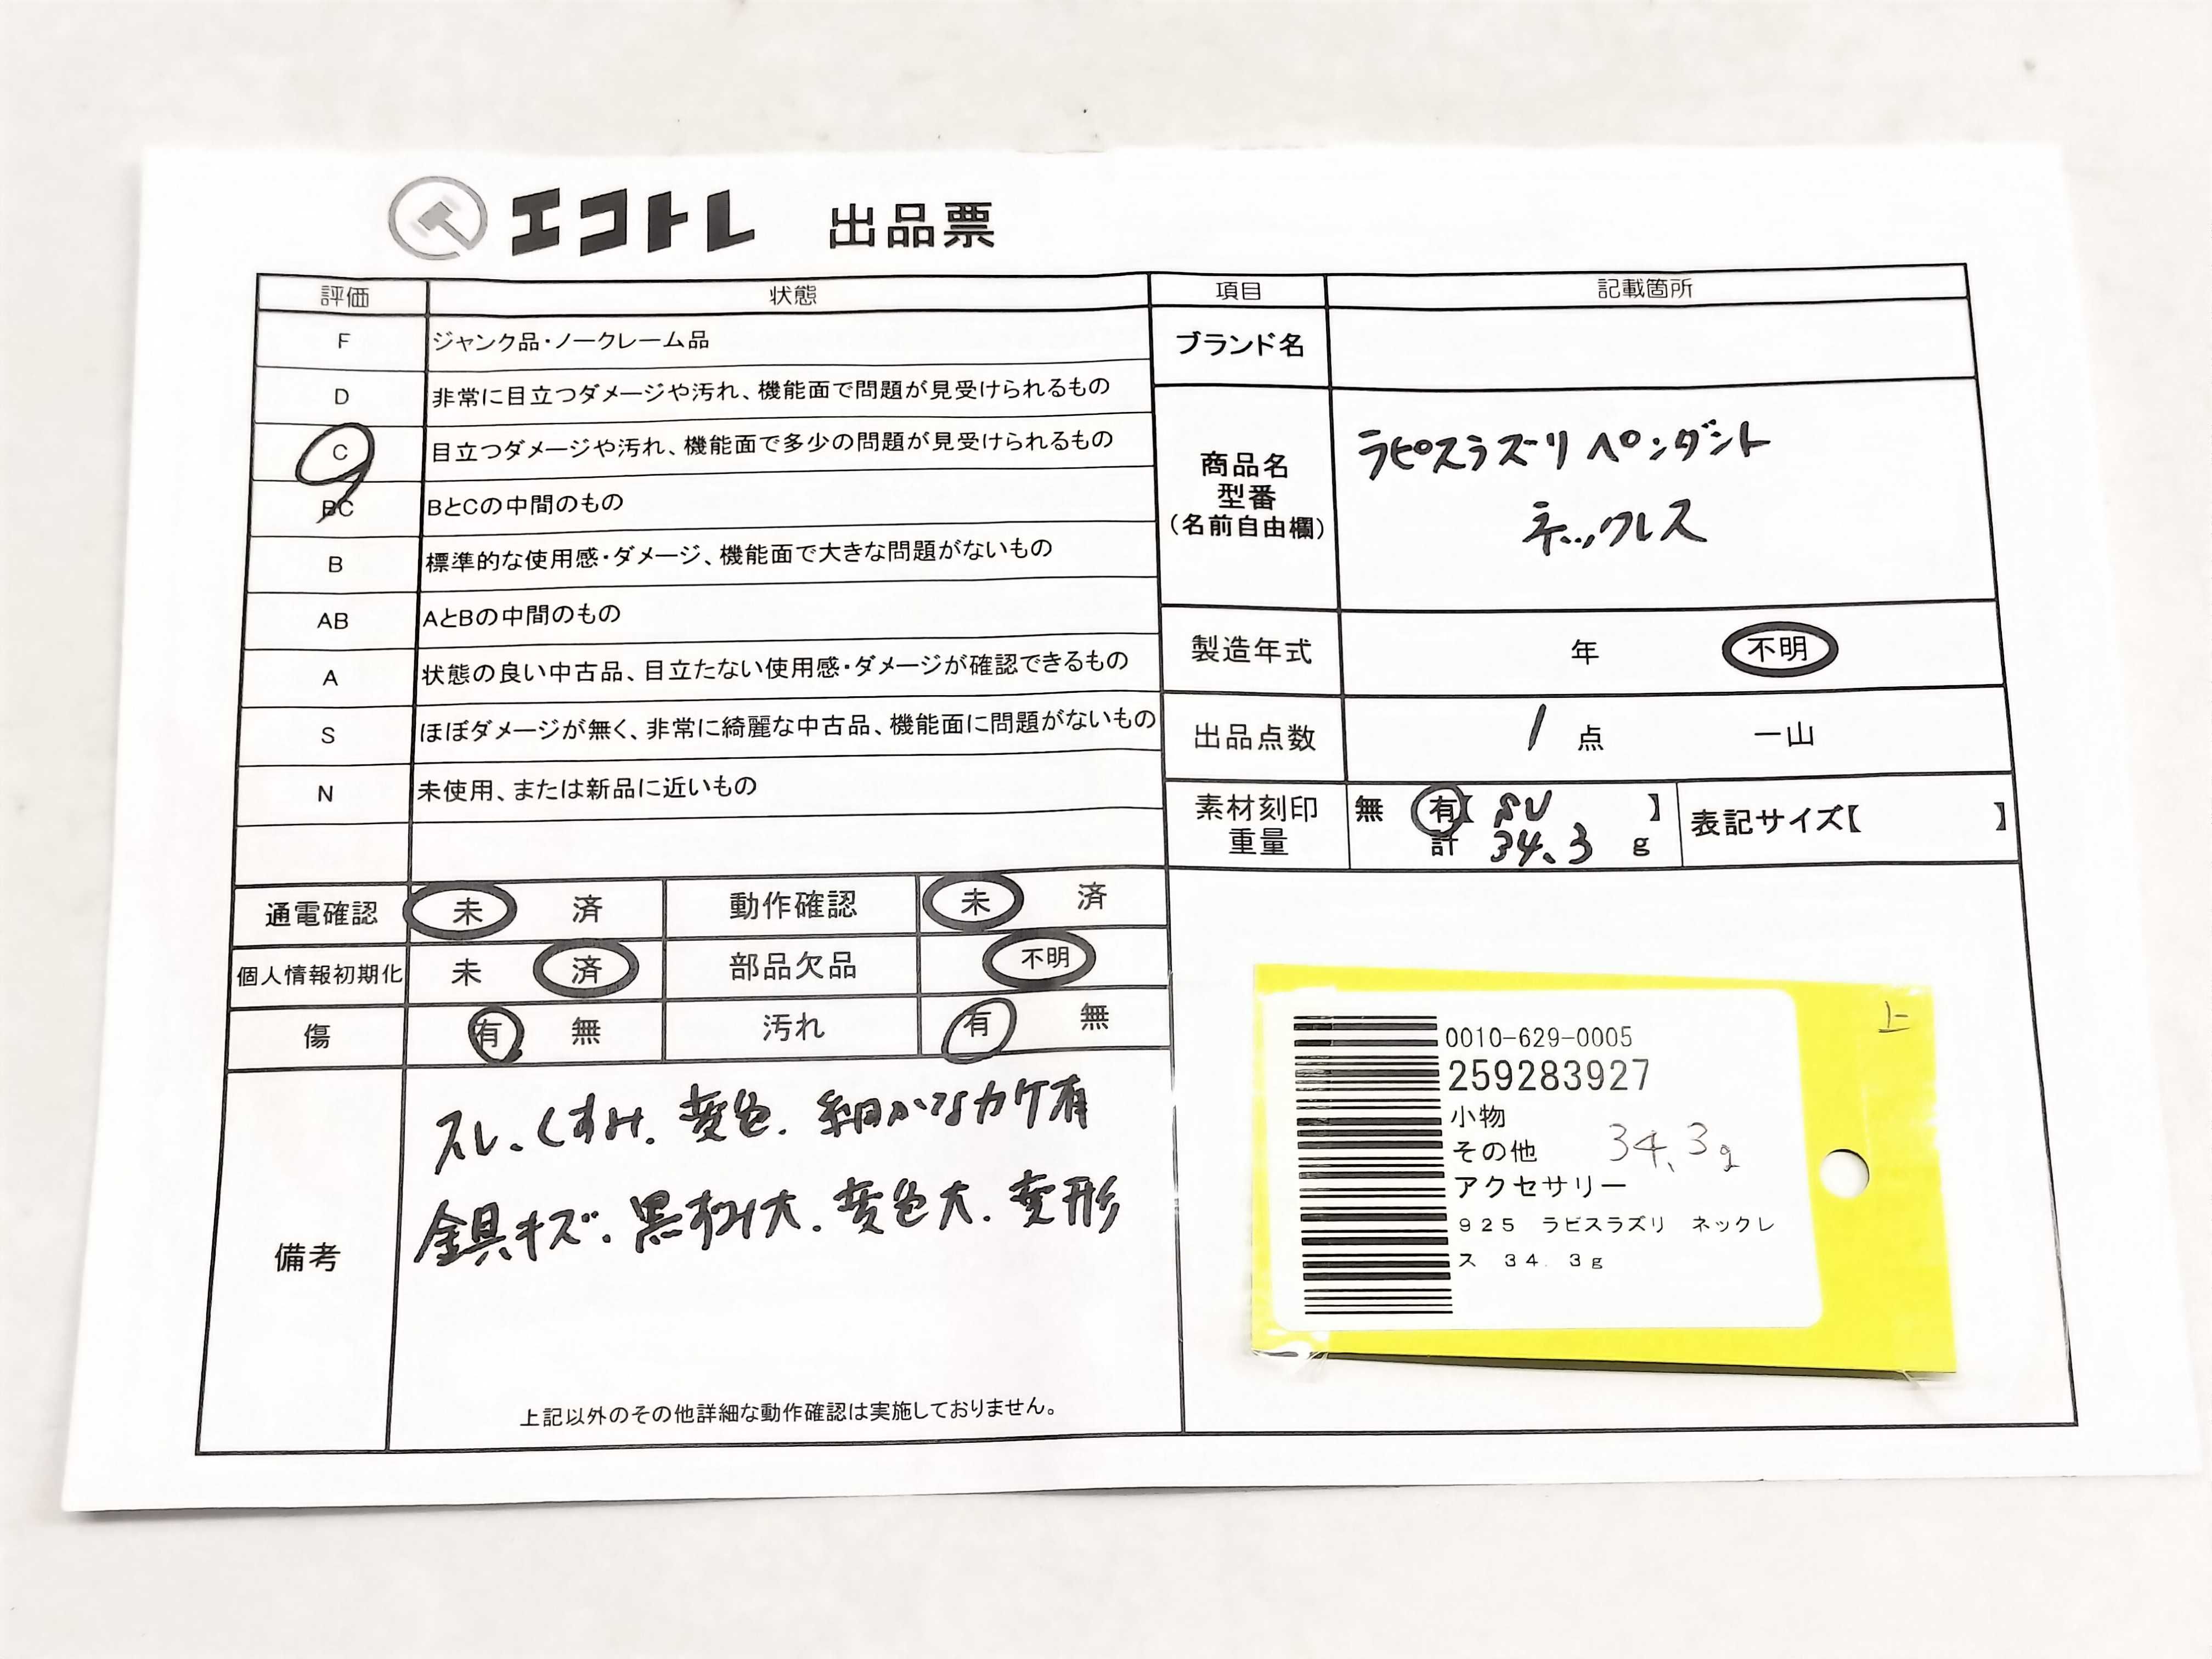 エコトレ 出品票
評価 状態
F ジャンク品・ノークレーム品
D 非常に目立つダメージや汚れ、機能面で問題が見受けられるもの
C 目立つダメージや汚れ、機能面で多少の問題が見受けられるもの
BC BとCの中間のもの
B 標準的な使用感・ダメージ、機能面で大きな問題がないもの
AB AとBの中間のもの
A 状態の良い中古品、目立たない使用感・ダメージが確認できるもの
S ほぼダメージが無く、非常に綺麗な中古品、機能面に問題がないもの
N 未使用、または新品に近いもの
通電確認 未 済 動作確認 未 済
個人情報初期化 未 済 部品欠品 不明
傷 有 無 汚れ 有 無
備考
スレ、くすみ、変色、細かなカケ有
金具キズ、黒ずみ大、変色大、変形
上記以外のその他詳細な動作確認は実施しておりません。
項目 記載箇所
ブランド名
商品名
型番
(名前自由欄)
ラピスラズリ ペンダント
ネックレス
製造年式 年 不明
出品点数 1 点 一山
素材刻印 無 有【 SV 】 表記サイズ【 】
重量 計 34.3 g
上
0010-629-0005
259283927
小物
その他 34.3g
アクセサリー
925 ラピスラズリ ネックレ
ス 34.3g